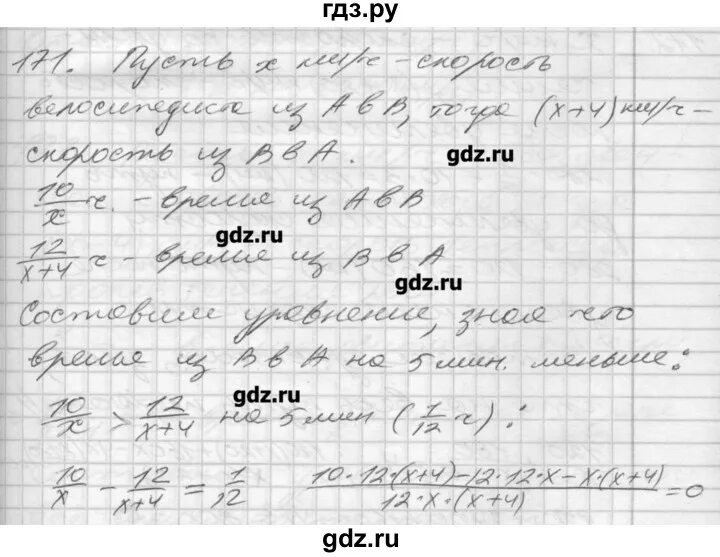 гдз.ру
171. Пусть x км/ч - скорость
велосипедиста из А в В, тогда (x+4) км/ч -
скорость из В в А.
gdz.ru
10/x ч. - время из А в В
gdz.ru
12/(x+4) ч - время из В в А
gdz.ru
Составим уравнение, зная что
время из В в А на 5 мин. меньше:
gdz.ru
10/x > 12/(x+4) на 5 мин (1/12 ч):
10/x - 12/(x+4) = 1/12 (10·12·(x+4)-12·12·x-x·(x+4))/(12·x·(x+4))=0